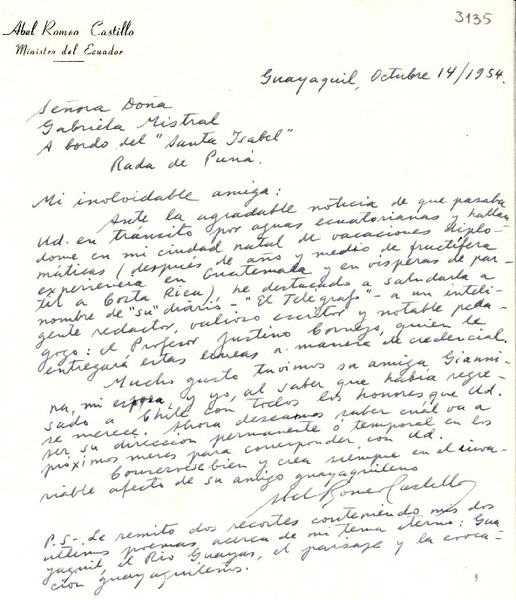 3135
Abel Romeo Castillo
Ministro del Ecuador
Guayaquil, Octubre 14/1954.
Señora Doña
Gabriela Mistral
A bordo del "Santa Isabel"
Rada de Puná.
Mi inolvidable amiga:
Ante la agradable noticia de que pasaba
Ud. en tránsito por aguas ecuatorianas y hallán
dome en mi ciudad natal de vacaciones diplo-
máticas (después de año y medio de fructífera
experiencia en Guatemala y en vísperas de par-
tir a Costa Rica), he destacado a saludarla a
nombre de "su" diario - "El Telégrafo" - a un inteli-
gente redactor, valioso escritor y notable peda-
gogo: el Profesor Justino Cornejo, quien le
entregará estas líneas a manera de credencial.
Mucho gusto tuvimos su amiga Gianni-
na, mi esposa, y yo, al saber que había regre-
sado a Chile con todos los honores que Ud.
se merece. Ahora deseamos saber cuál va a
ser su dirección permanente ó temporal en los
próximos meses para corresponder con Ud.
Consérvese bien y crea siempre en el inva-
riable afecto de su amigo guayaquileño
Abel Romeo Castillo
P.S.- Le remito dos recortes conteniendo mis dos
últimos poemas acerca de mi tema eterno: Gua
yaquil, el Río Guayas, el paisaje y la evoca-
ción guayaquileños.